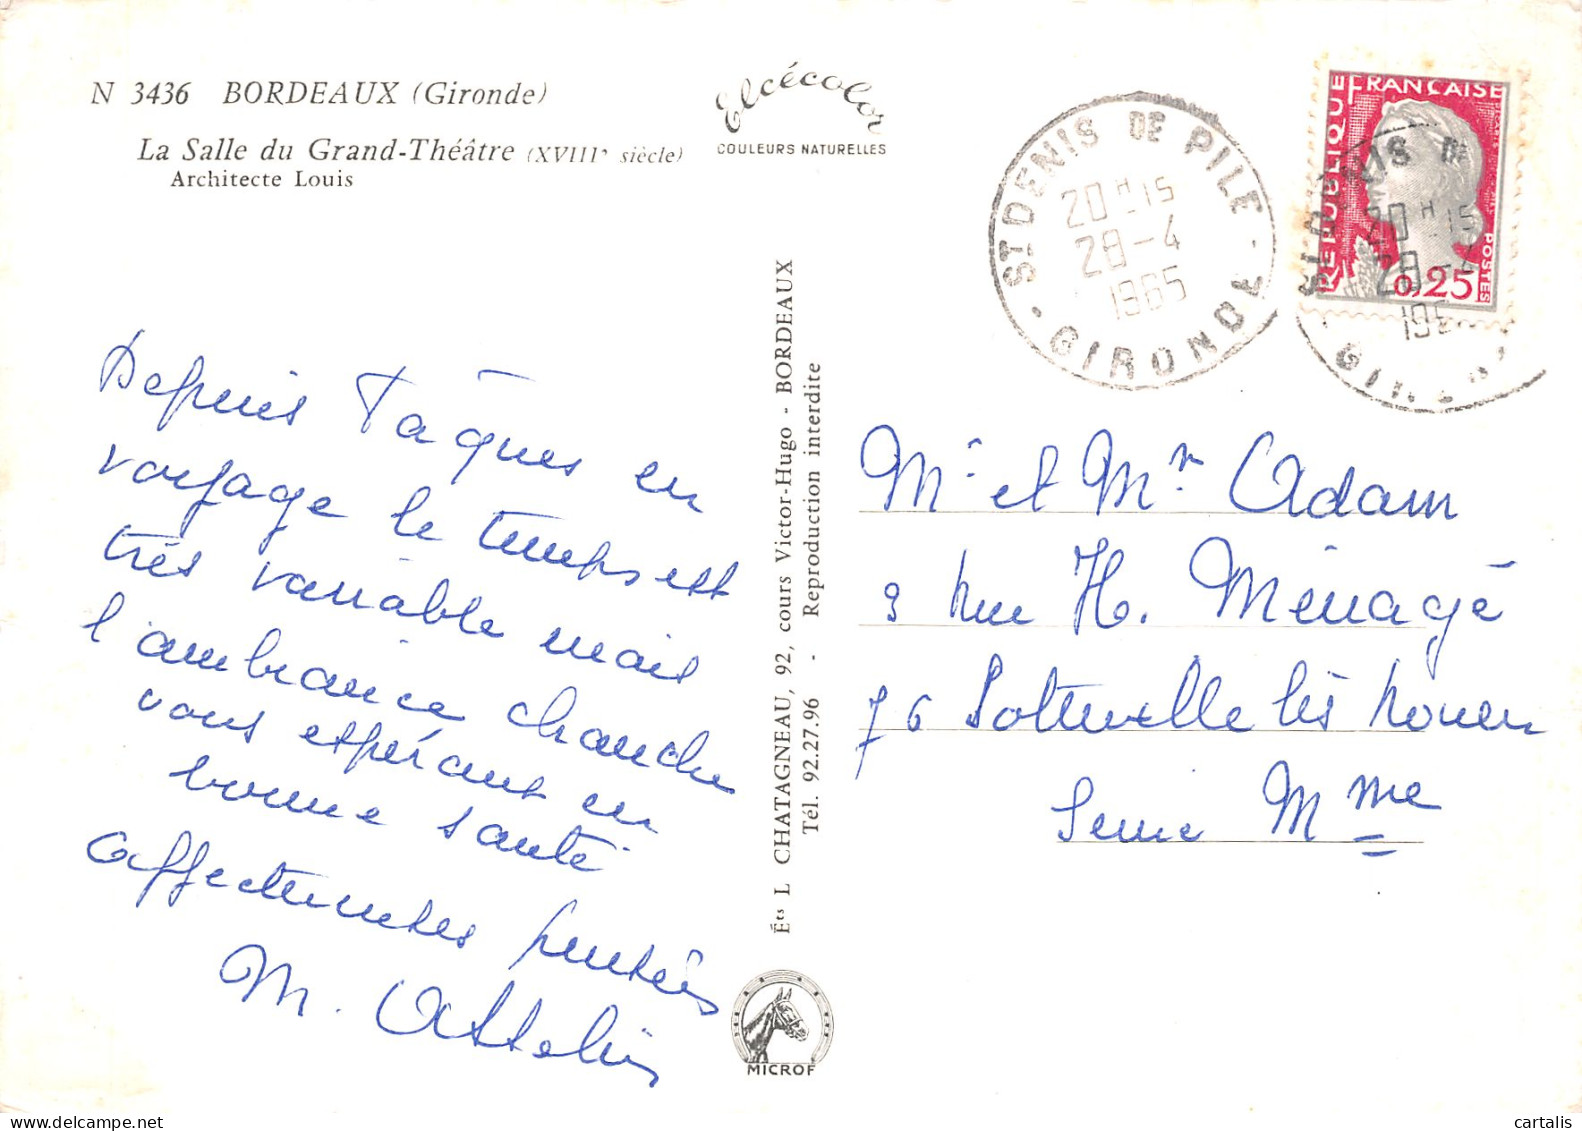 N 3436 BORDEAUX (Gironde)
La Salle du Grand-Théâtre (XVIIIᵉ siècle)
Architecte Louis
Elcécolor
COULEURS NATURELLES
ST DENIS DE PILE
20 H 15
28-4
1965
GIRONDE
RÉPUBLIQUE FRANÇAISE
0,25
POSTES
Depuis Pâques en
voyage le temps est
très variable mais
l'ambiance chauche
vous espérant en
bonne santé
affectueuses pensées
M.
Éts L CHATAGNEAU, 92, cours Victor-Hugo - BORDEAUX
Tél. 92.27.96 - Reproduction interdite
MICROF
Mr et Mr Adam
9 rue H. Ménagé
76 Sotteville lès Rouen
Seine Mme
cartalis